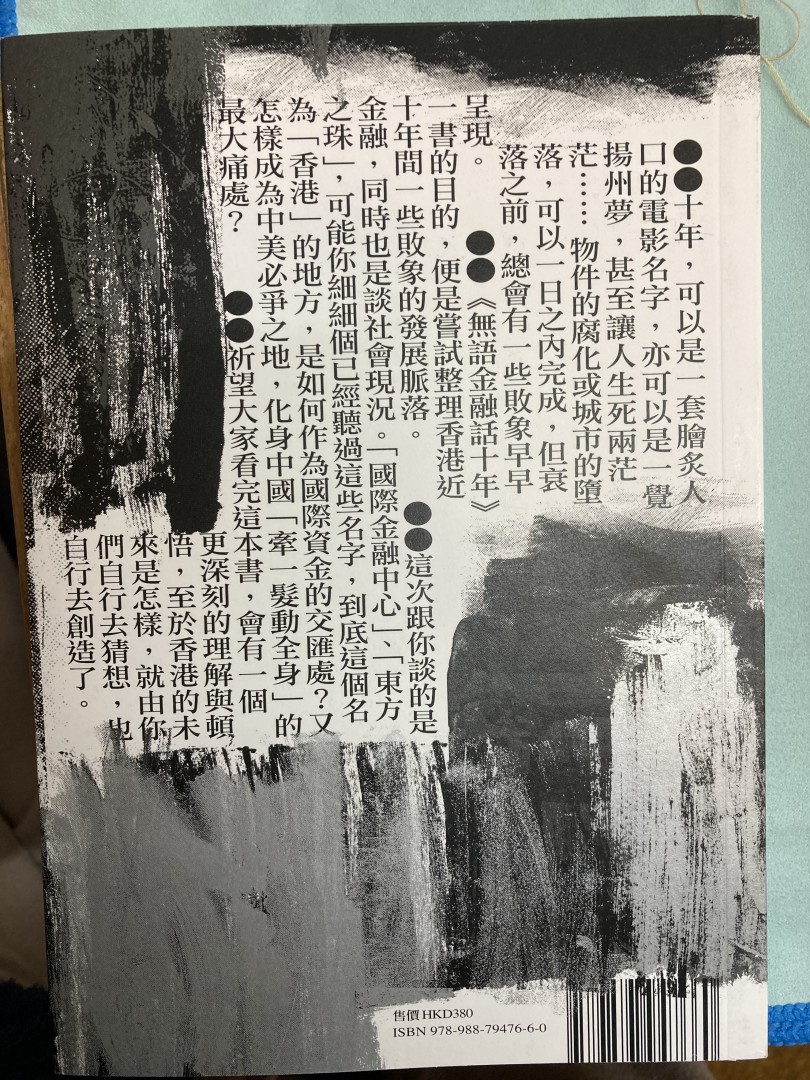 ●●十年，可以是一套膾炙人
口的電影名字，亦可以是一覺
揚州夢，甚至讓人生死兩茫
茫……物件的腐化或城市的墮
落，可以一日之內完成，但衰
落之前，總會有一些敗象早早
呈現。●●《無語金融話十年》
一書的目的，便是嘗試整理香港近
十年間一些敗象的發展脈落。●●這次跟你談的是
金融，同時也是談社會現況。「國際金融中心」、「東方
之珠」，可能你細細個已經聽過這些名字，到底這個名
為「香港」的地方，是如何作為國際資金的交匯處？又
怎樣成為中美必爭之地，化身中國「牽一髮動全身」的
最大痛處？●●祈望大家看完這本書，會有一個
更深刻的理解與頓
悟，至於香港的未
來是怎樣，就由你
們自行去猜想，也
自行去創造了。
售價 HKD380
ISBN 978-988-79476-6-0